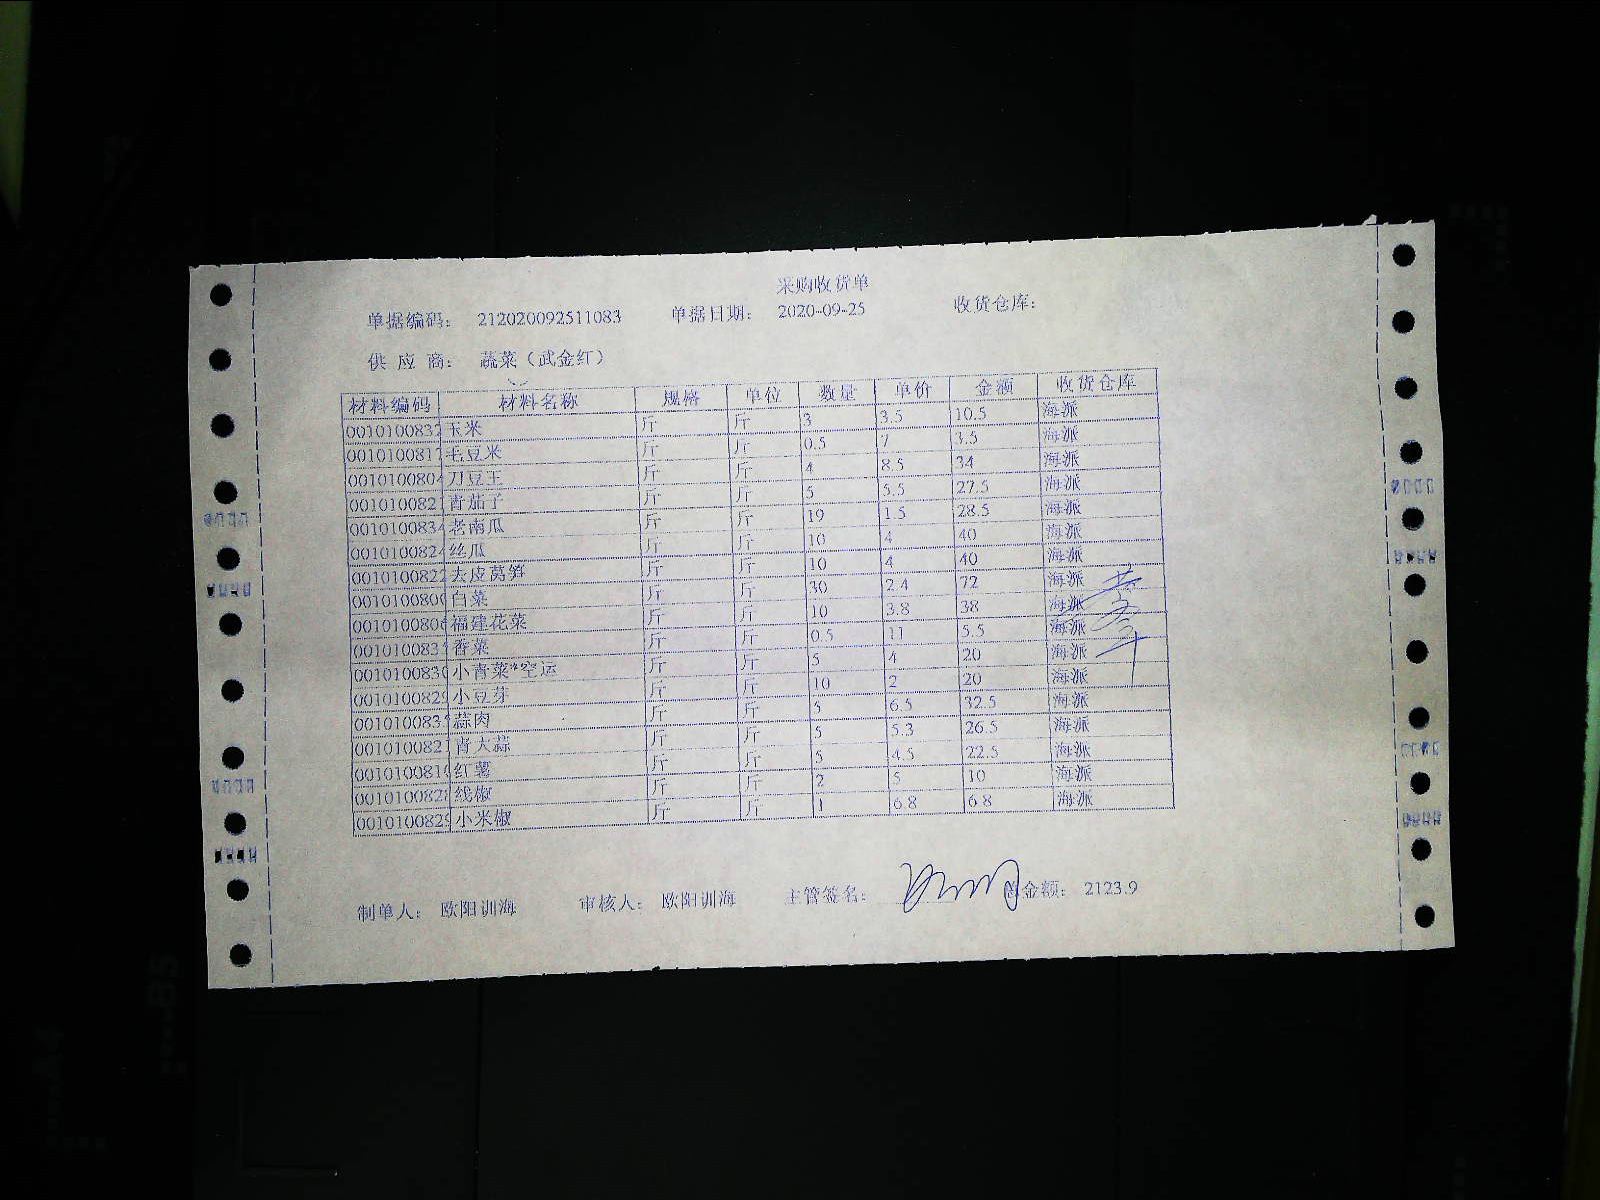 采购收货单
单据编码: 212020092511083 单据日期: 2020-09-25 收货仓库:
供 应 商: 蔬菜（武金红）
材料编码 材料名称 规格 单位 数量 单价 金额 收货仓库
0010100832 玉米 斤 斤 3 3.5 10.5 海派
0010100817 毛豆米 斤 斤 0.5 7 3.5 海派
0010100804 刀豆王 斤 斤 4 8.5 34 海派
0010100821 青茄子 斤 斤 5 5.5 27.5 海派
0010100834 老南瓜 斤 斤 19 1.5 28.5 海派
0010100824 丝瓜 斤 斤 10 4 40 海派
0010100822 去皮莴笋 斤 斤 10 4 40 海派
0010100800 白菜 斤 斤 30 2.4 72 海派
0010100806 福建花菜 斤 斤 10 3.8 38 海派
001010083 香菜 斤 斤 0.5 11 5.5 海派
0010100830 小青菜*空运 斤 斤 5 4 20 海派
0010100829 小豆芽 斤 斤 10 2 20 海派
001010083 蒜肉 斤 斤 5 6.5 32.5 海派
0010100821 青大蒜 斤 斤 5 5.3 26.5 海派
0010100810 红薯 斤 斤 5 4.5 22.5 海派
0010100828 线椒 斤 斤 2 5 10 海派
0010100829 小米椒 斤 斤 1 6.8 6.8 海派
制单人: 欧阳训海 审核人: 欧阳训海 主管签名: 金额: 2123.9